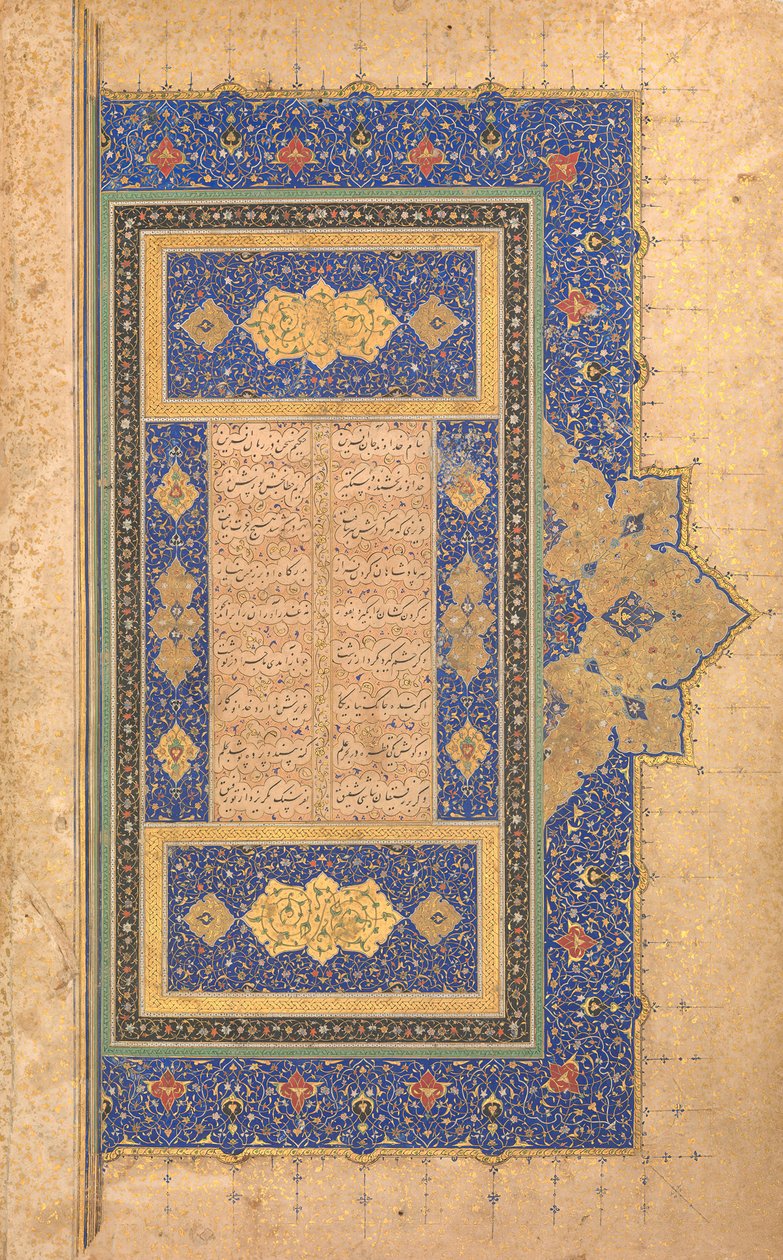 بنام خداوند جان آفرین حکیم سخن در زبان آفرین
خداوند بخشنده دستگیر کریم خطابخش پوزش پذیر
عزیزی که هر کز درش سر بتافت بهر در که شد هیچ عزت نیافت
سر پادشاهان کردن فراز بدرگاه او بر زمین نیاز
نه کردن کشان را بگیرد بفور نه عذرآوران را براند بجور
وگر خشم گیرد بکردار زشت چو باز آمدی ماجرا در نوشت
اگر بنده چابک نیاید بکار عزیزش ندارد خداوندگار
دو کونش یکی قطره در بحر علم گنه بیند و پرده پوشد بحلم
وگر بر رفیقان نباشی شفیق بفرسنگ بگریزد از تو رفیق